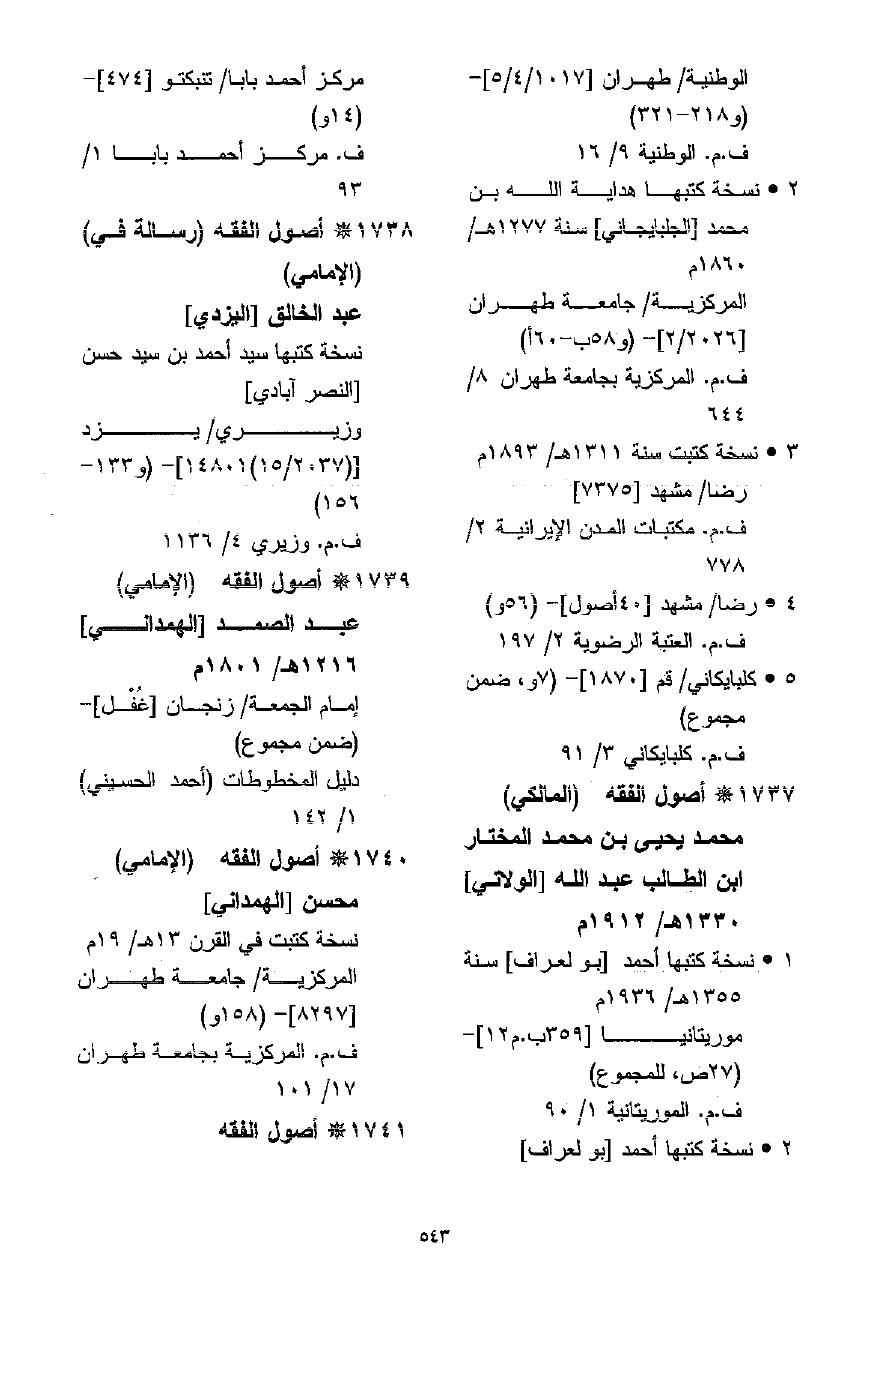 الوطنية/ طهران [٥/٤/١٠١٧]-
(و٢١٨-٣٢١)
ف.م. الوطنية ٩/ ١٦
٢ • نسخة كتبها هداية الله بن
محمد [الجلبايجاني] سنة ١٢٧٧هـ/
١٨٦٠م
المركزية/ جامعة طهران
[٢/٢٠٢٦]- (و٥٨ب-٦٠أ)
ف.م. المركزية بجامعة طهران ٨/
٦٤٤
٣ • نسخة كتبت سنة ١٣١١هـ/ ١٨٩٣م
رضا/ مشهد [٧٣٧٥]
ف.م. مكتبات المدن الإيرانية ٢/
٧٧٨
٤ • رضا/ مشهد [٤٠أصول]- (٥٦و)
ف.م. العتبة الرضوية ٢/ ١٩٧
٥ • كلبايكاني/ قم [١٨٧٠]- (٧و، ضمن
مجموع)
ف.م. كلبايكاني ٣/ ٩١
١٧٣٧ ❋ أصول الفقه (المالكي)
محمد يحيى بن محمد المختار
ابن الطالب عبد الله [الولاتي]
١٣٣٠هـ/ ١٩١٢م
١ • نسخة كتبها أحمد [بو لعراف] سنة
١٣٥٥هـ/ ١٩٣٦م
موريتانيا [٣٥٩ب.م١٢]-
(٢٧ص، للمجموع)
ف.م. الموريتانية ١/ ٩٠
٢ • نسخة كتبها أحمد [بو لعراف]
مركز أحمد بابا/ تنبكتو [٤٧٤]-
(١٤و)
ف. مركز أحمد بابا ١/
٩٣
١٧٣٨ ❋ أصول الفقه (رسالة في)
(الإمامي)
عبد الخالق [اليزدي]
نسخة كتبها سيد أحمد بن سيد حسن
[النصر آبادي]
وزيري/ يزد
[١٤٨٠١(١٥/٢٠٣٧)]- (و١٣٣-
١٥٦)
ف.م. وزيري ٤/ ١١٣٦
١٧٣٩ ❋ أصول الفقه (الإمامي)
عبد الصمد [الهمداني]
١٢١٦هـ/ ١٨٠١م
إمام الجمعة/ زنجان [غُفْل]-
(ضمن مجموع)
دليل المخطوطات (أحمد الحسيني)
١/ ١٤٢
١٧٤٠ ❋ أصول الفقه (الإمامي)
محسن [الهمداني]
نسخة كتبت في القرن ١٣هـ/ ١٩م
المركزية/ جامعة طهران
[٨٢٩٧]- (١٥٨و)
ف.م. المركزية بجامعة طهران
١٧/ ١٠١
١٧٤١ ❋ أصول الفقه
٥٤٣